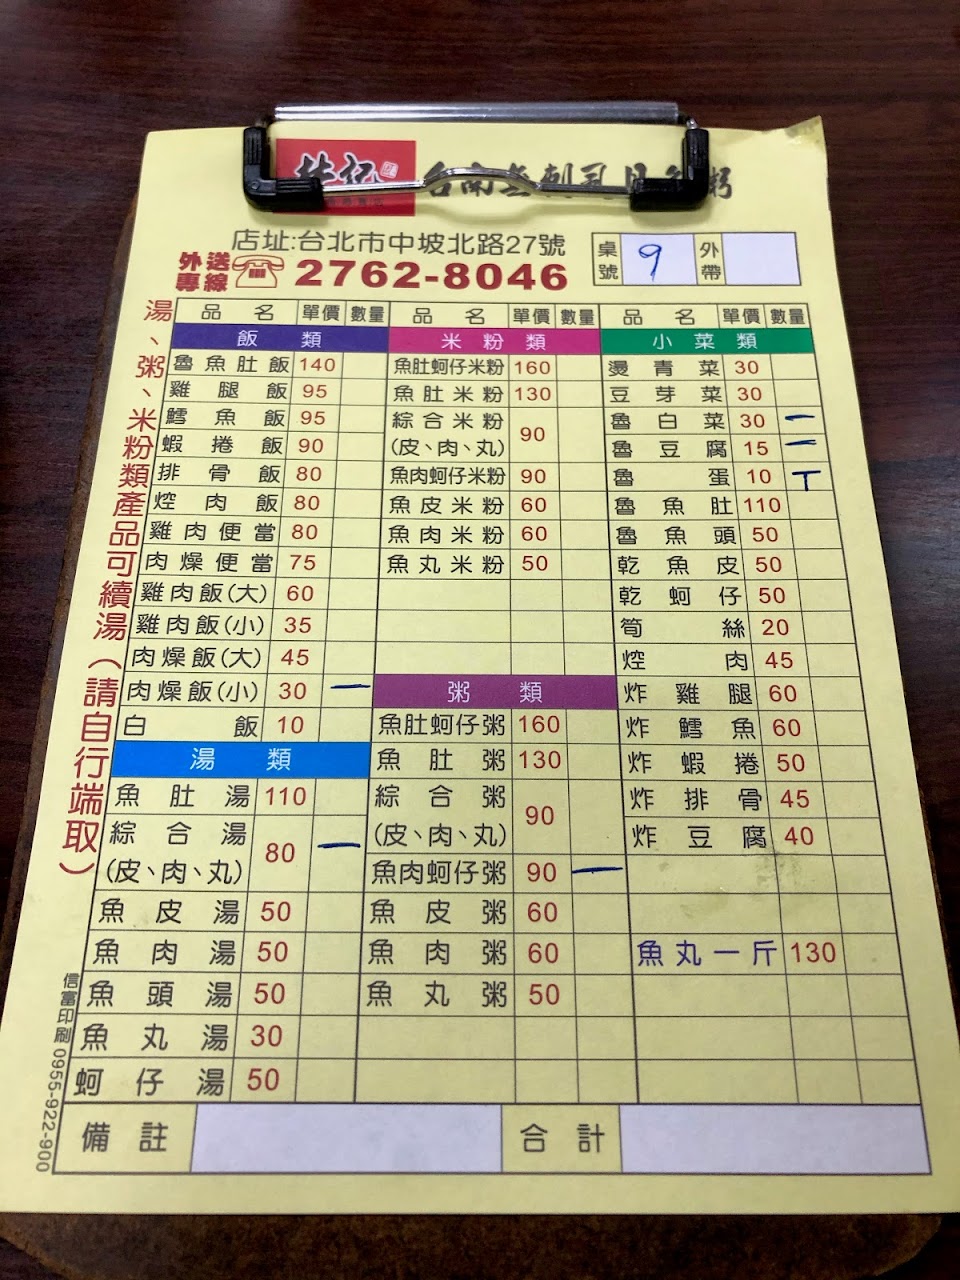 店址:台北市中坡北路27號
外送專線
2762-8046
桌號 9 外帶
湯、粥、米粉類產品可續湯(請自行端取)
品名 單價 數量
飯類
魯魚肚飯 140
雞腿飯 95
鱈魚飯 95
蝦捲飯 90
排骨飯 80
焢肉飯 80
雞肉便當 80
肉燥便當 75
雞肉飯(大) 60
雞肉飯(小) 35
肉燥飯(大) 45
肉燥飯(小) 30 一
白飯 10
湯類
魚肚湯 110
綜合湯
(皮、肉、丸) 80 一
魚皮湯 50
魚肉湯 50
魚頭湯 50
魚丸湯 30
蚵仔湯 50
品名 單價 數量
米粉類
魚肚蚵仔米粉 160
魚肚米粉 130
綜合米粉
(皮、肉、丸) 90
魚肉蚵仔米粉 90
魚皮米粉 60
魚肉米粉 60
魚丸米粉 50
粥類
魚肚蚵仔粥 160
魚肚粥 130
綜合粥
(皮、肉、丸) 90
魚肉蚵仔粥 90 一
魚皮粥 60
魚肉粥 60
魚丸粥 50
品名 單價 數量
小菜類
燙青菜 30
豆芽菜 30
魯白菜 30 一
魯豆腐 15 一
魯蛋 10 丅
魯魚肚 110
魯魚頭 50
乾魚皮 50
乾蚵仔 50
筍絲 20
焢肉 45
炸雞腿 60
炸鱈魚 60
炸蝦捲 50
炸排骨 45
炸豆腐 40
魚丸一斤 130
備註
合計
信富印刷 0955-922-900